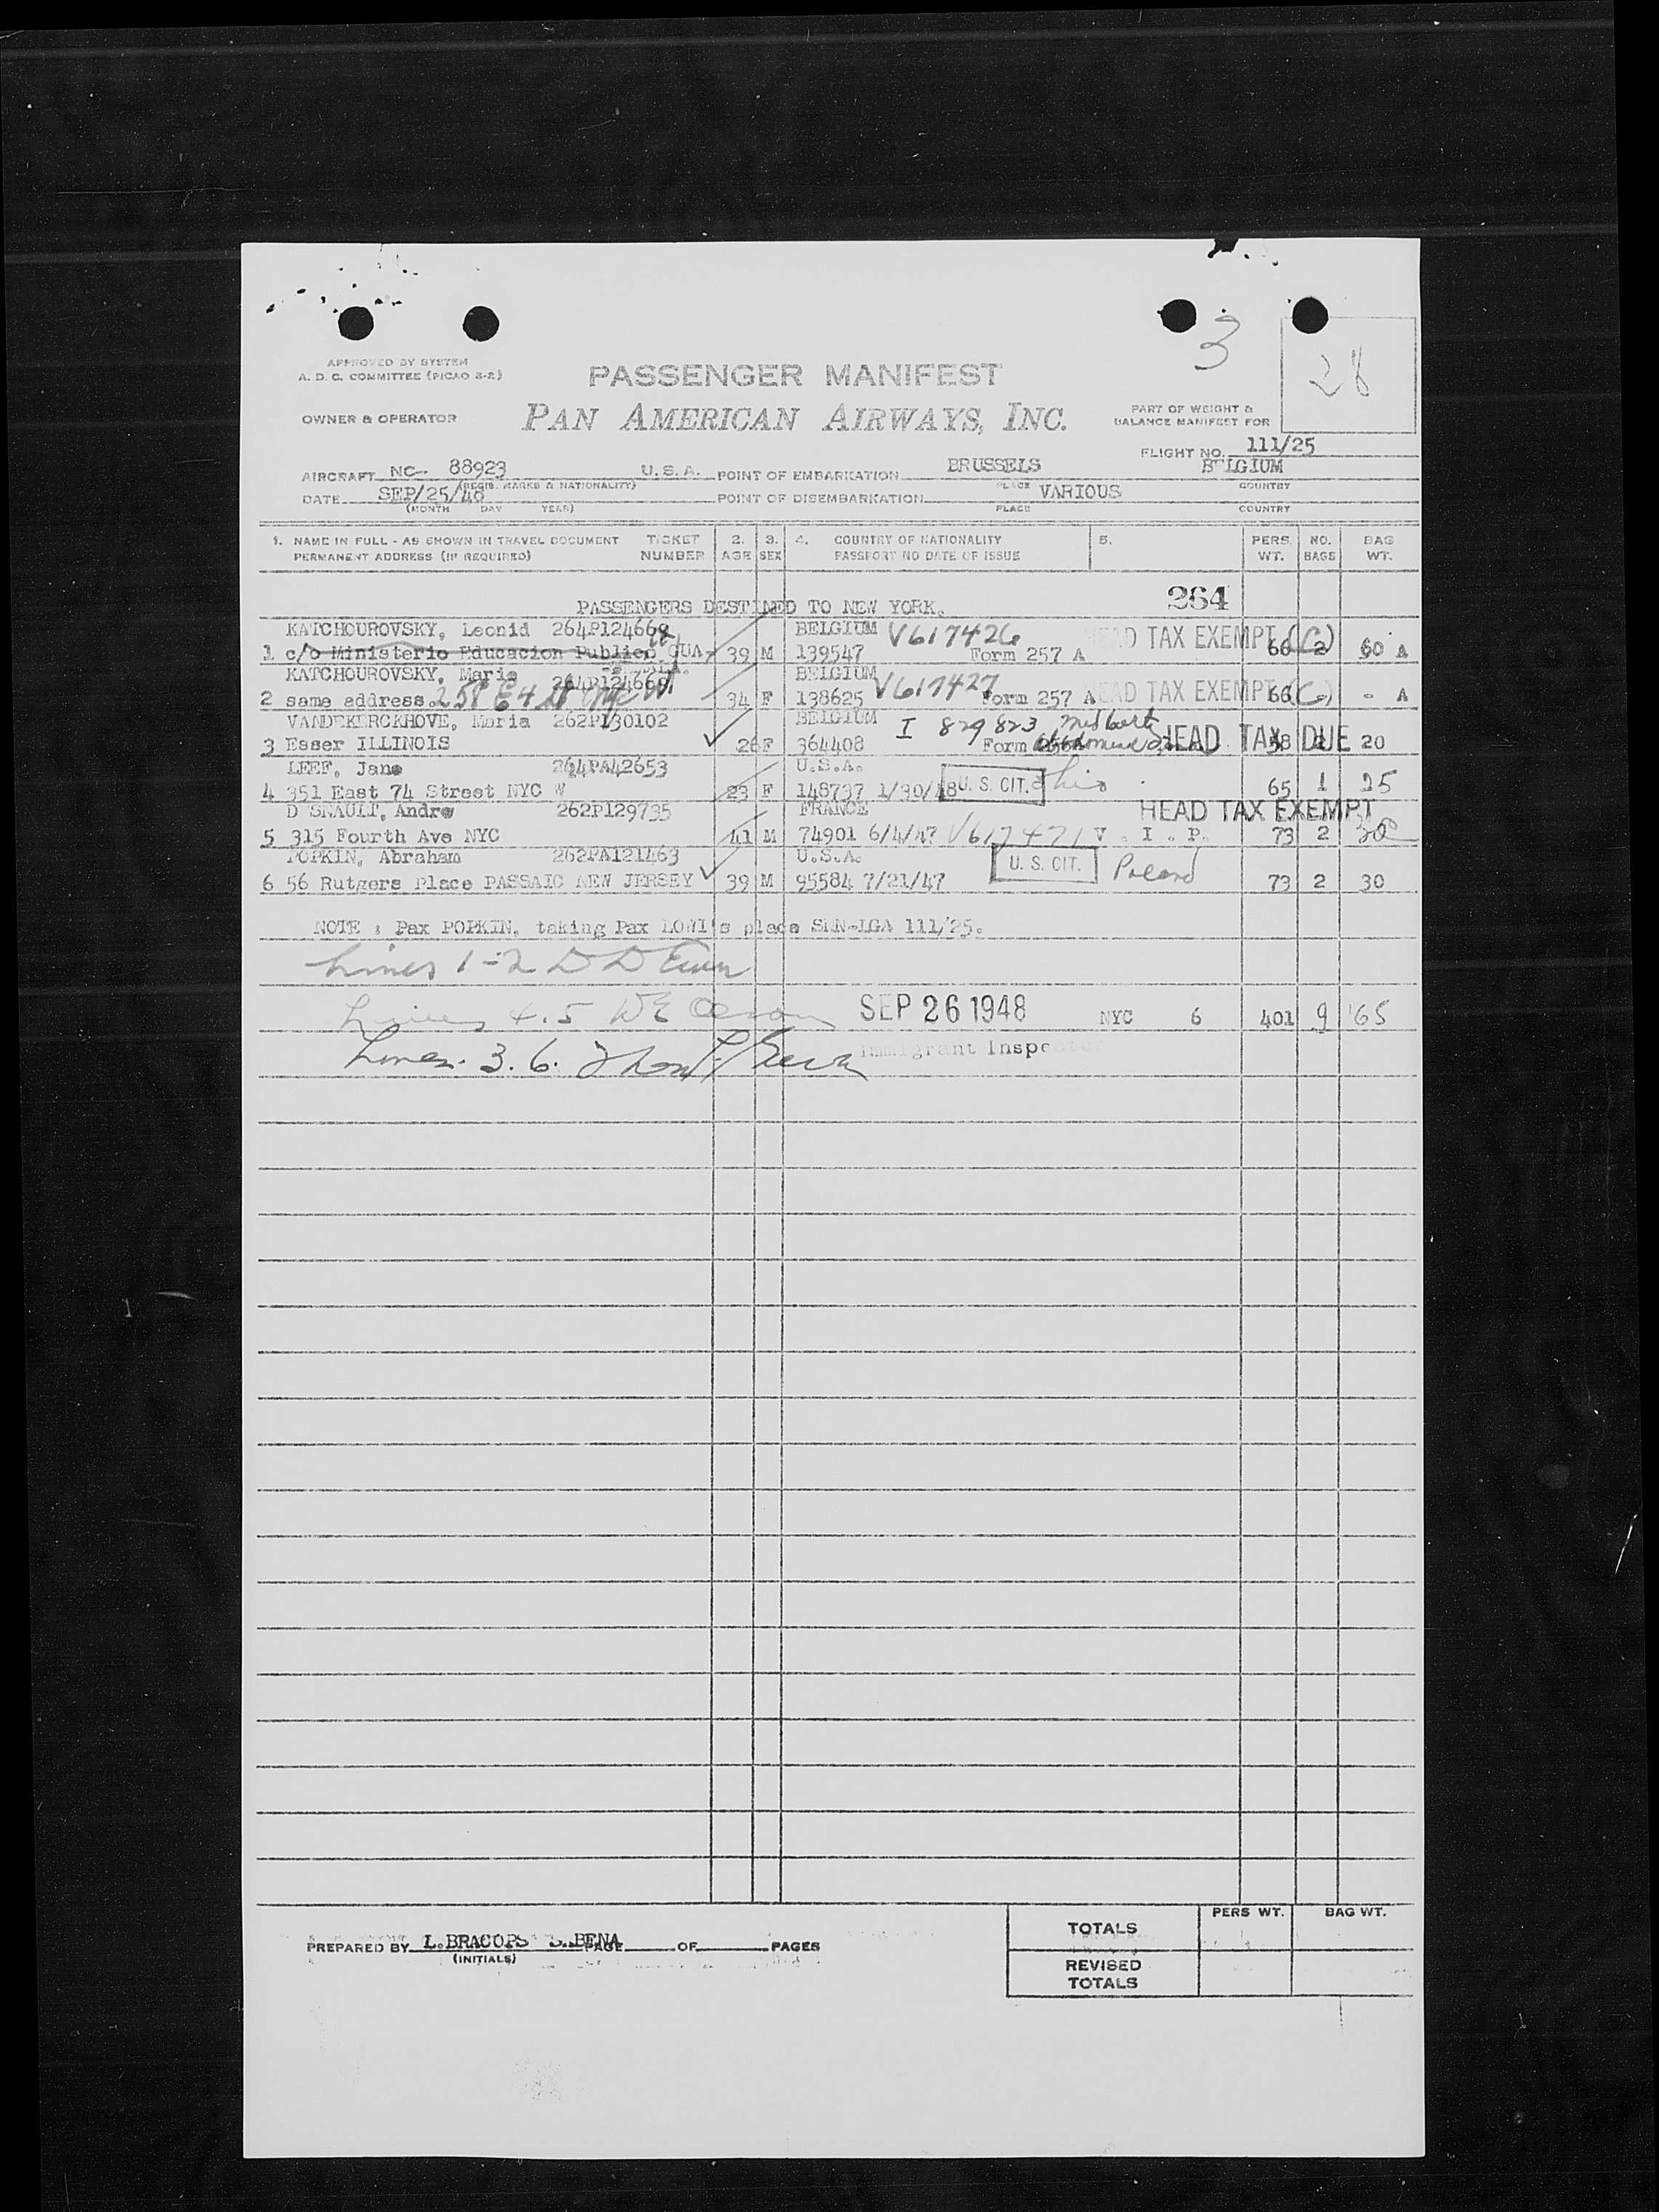 3
28
APPROVED BY SYSTEM
A. D. C. COMMITTEE (PICAO 2-2)
PASSENGER MANIFEST
OWNER & OPERATOR PAN AMERICAN AIRWAYS, INC.
PART OF WEIGHT &
BALANCE MANIFEST FOR
FLIGHT NO. 111/25
AIRCRAFT NC-- 88923 U. S. A. POINT OF EMBARKATION BRUSSELS BELGIUM
(REGIS. MARKS & NATIONALITY) PLACE COUNTRY
DATE SEP/25/48 POINT OF DISEMBARKATION VARIOUS
(MONTH DAY YEAR) PLACE COUNTRY
1. NAME IN FULL - AS SHOWN IN TRAVEL DOCUMENT TICKET 2. 3. 4. COUNTRY OF NATIONALITY 5. PERS. NO. BAG
PERMANENT ADDRESS (IF REQUIRED) NUMBER AGE SEX PASSPORT NO DATE OF ISSUE WT. BAGS WT.
264
PASSENGERS DESTINED TO NEW YORK.
KATCHOUROVSKY, Leonid 264P124668 BELGIUM V617426 HEAD TAX EXEMPT (C)
1 c/o Ministerio Educacion Publico GUA- 39 M 139547 Form 257 A 66 2 60 A
KATCHOUROVSKY, Maria 264P124669 BELGIUM V617427 HEAD TAX EXEMPT (C)
2 same address. 258 E 4 St NYC 34 F 138625 Form 257 A 66 - - A
VANDEKERCKHOVE, Maria 262P130102 BELGIUM I 829823
3 Esser ILLINOIS 26 F 364408 Form HEAD TAX DUE 58 20
LEEF, Jane 264PA42653 U.S.A.
4 351 East 74 Street NYC 23 F 148737 1/30/48 U. S. CIT. Ohio 65 1 25
D'SNAULT, Andre 262P129735 FRANCE HEAD TAX EXEMPT
5 315 Fourth Ave NYC 41 M 74901 6/4/47 V617471 V . I . P. 73 2 30
POPKIN, Abraham 262PA121463 U.S.A. U. S. CIT. Poland
6 56 Rutgers Place PASSAIC NEW JERSEY 39 M 95584 7/21/47 73 2 30
NOTE : Pax POPKIN, taking Pax LOWI's place SNN-LGA 111/25.
Lines 1-2 D D
Lines 4.5 WE SEP 26 1948 NYC 6 401 9 165
Lines. 3. 6. Immigrant Inspector
PREPARED BY L.BRACOPS BENA PAGE OF PAGES
(INITIALS)
PERS WT. BAG WT.
TOTALS
REVISED
TOTALS